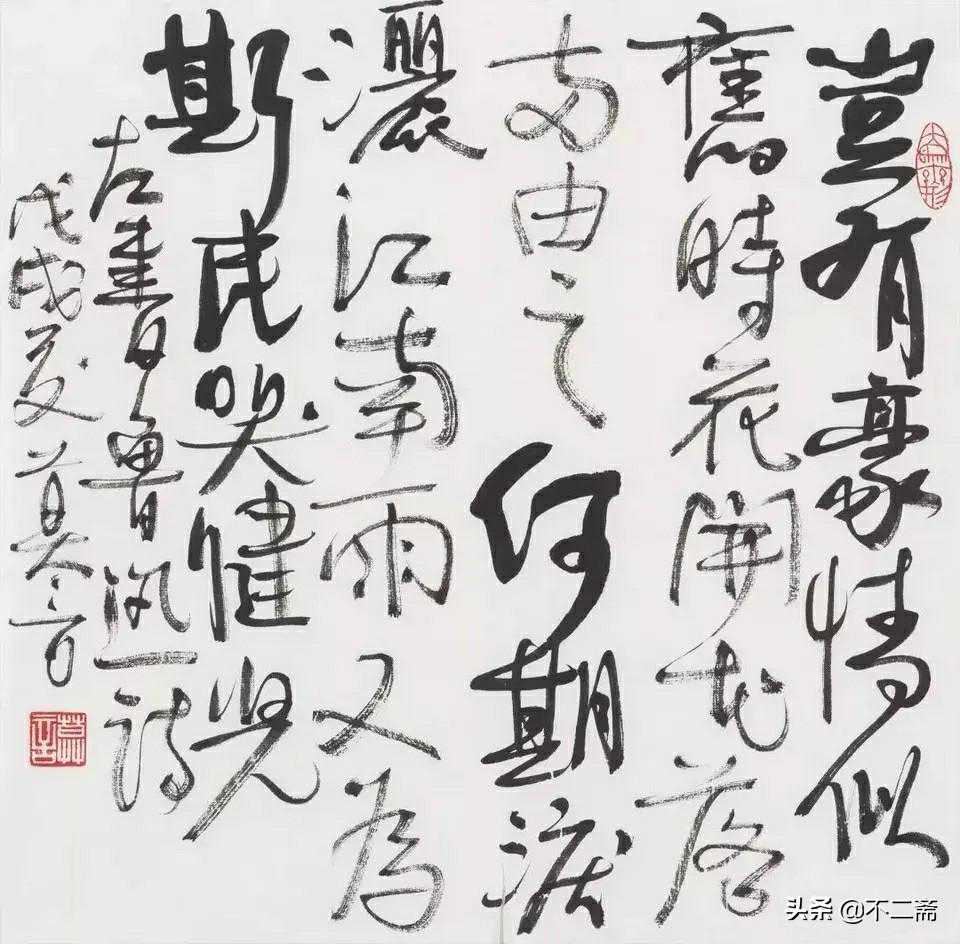 豈有豪情似
舊時花開花落
兩由之何期淚
灑江南雨又為
斯民哭健兒
左書魯迅詩
戊戌夏莫言
莫言
头条 @不二斋